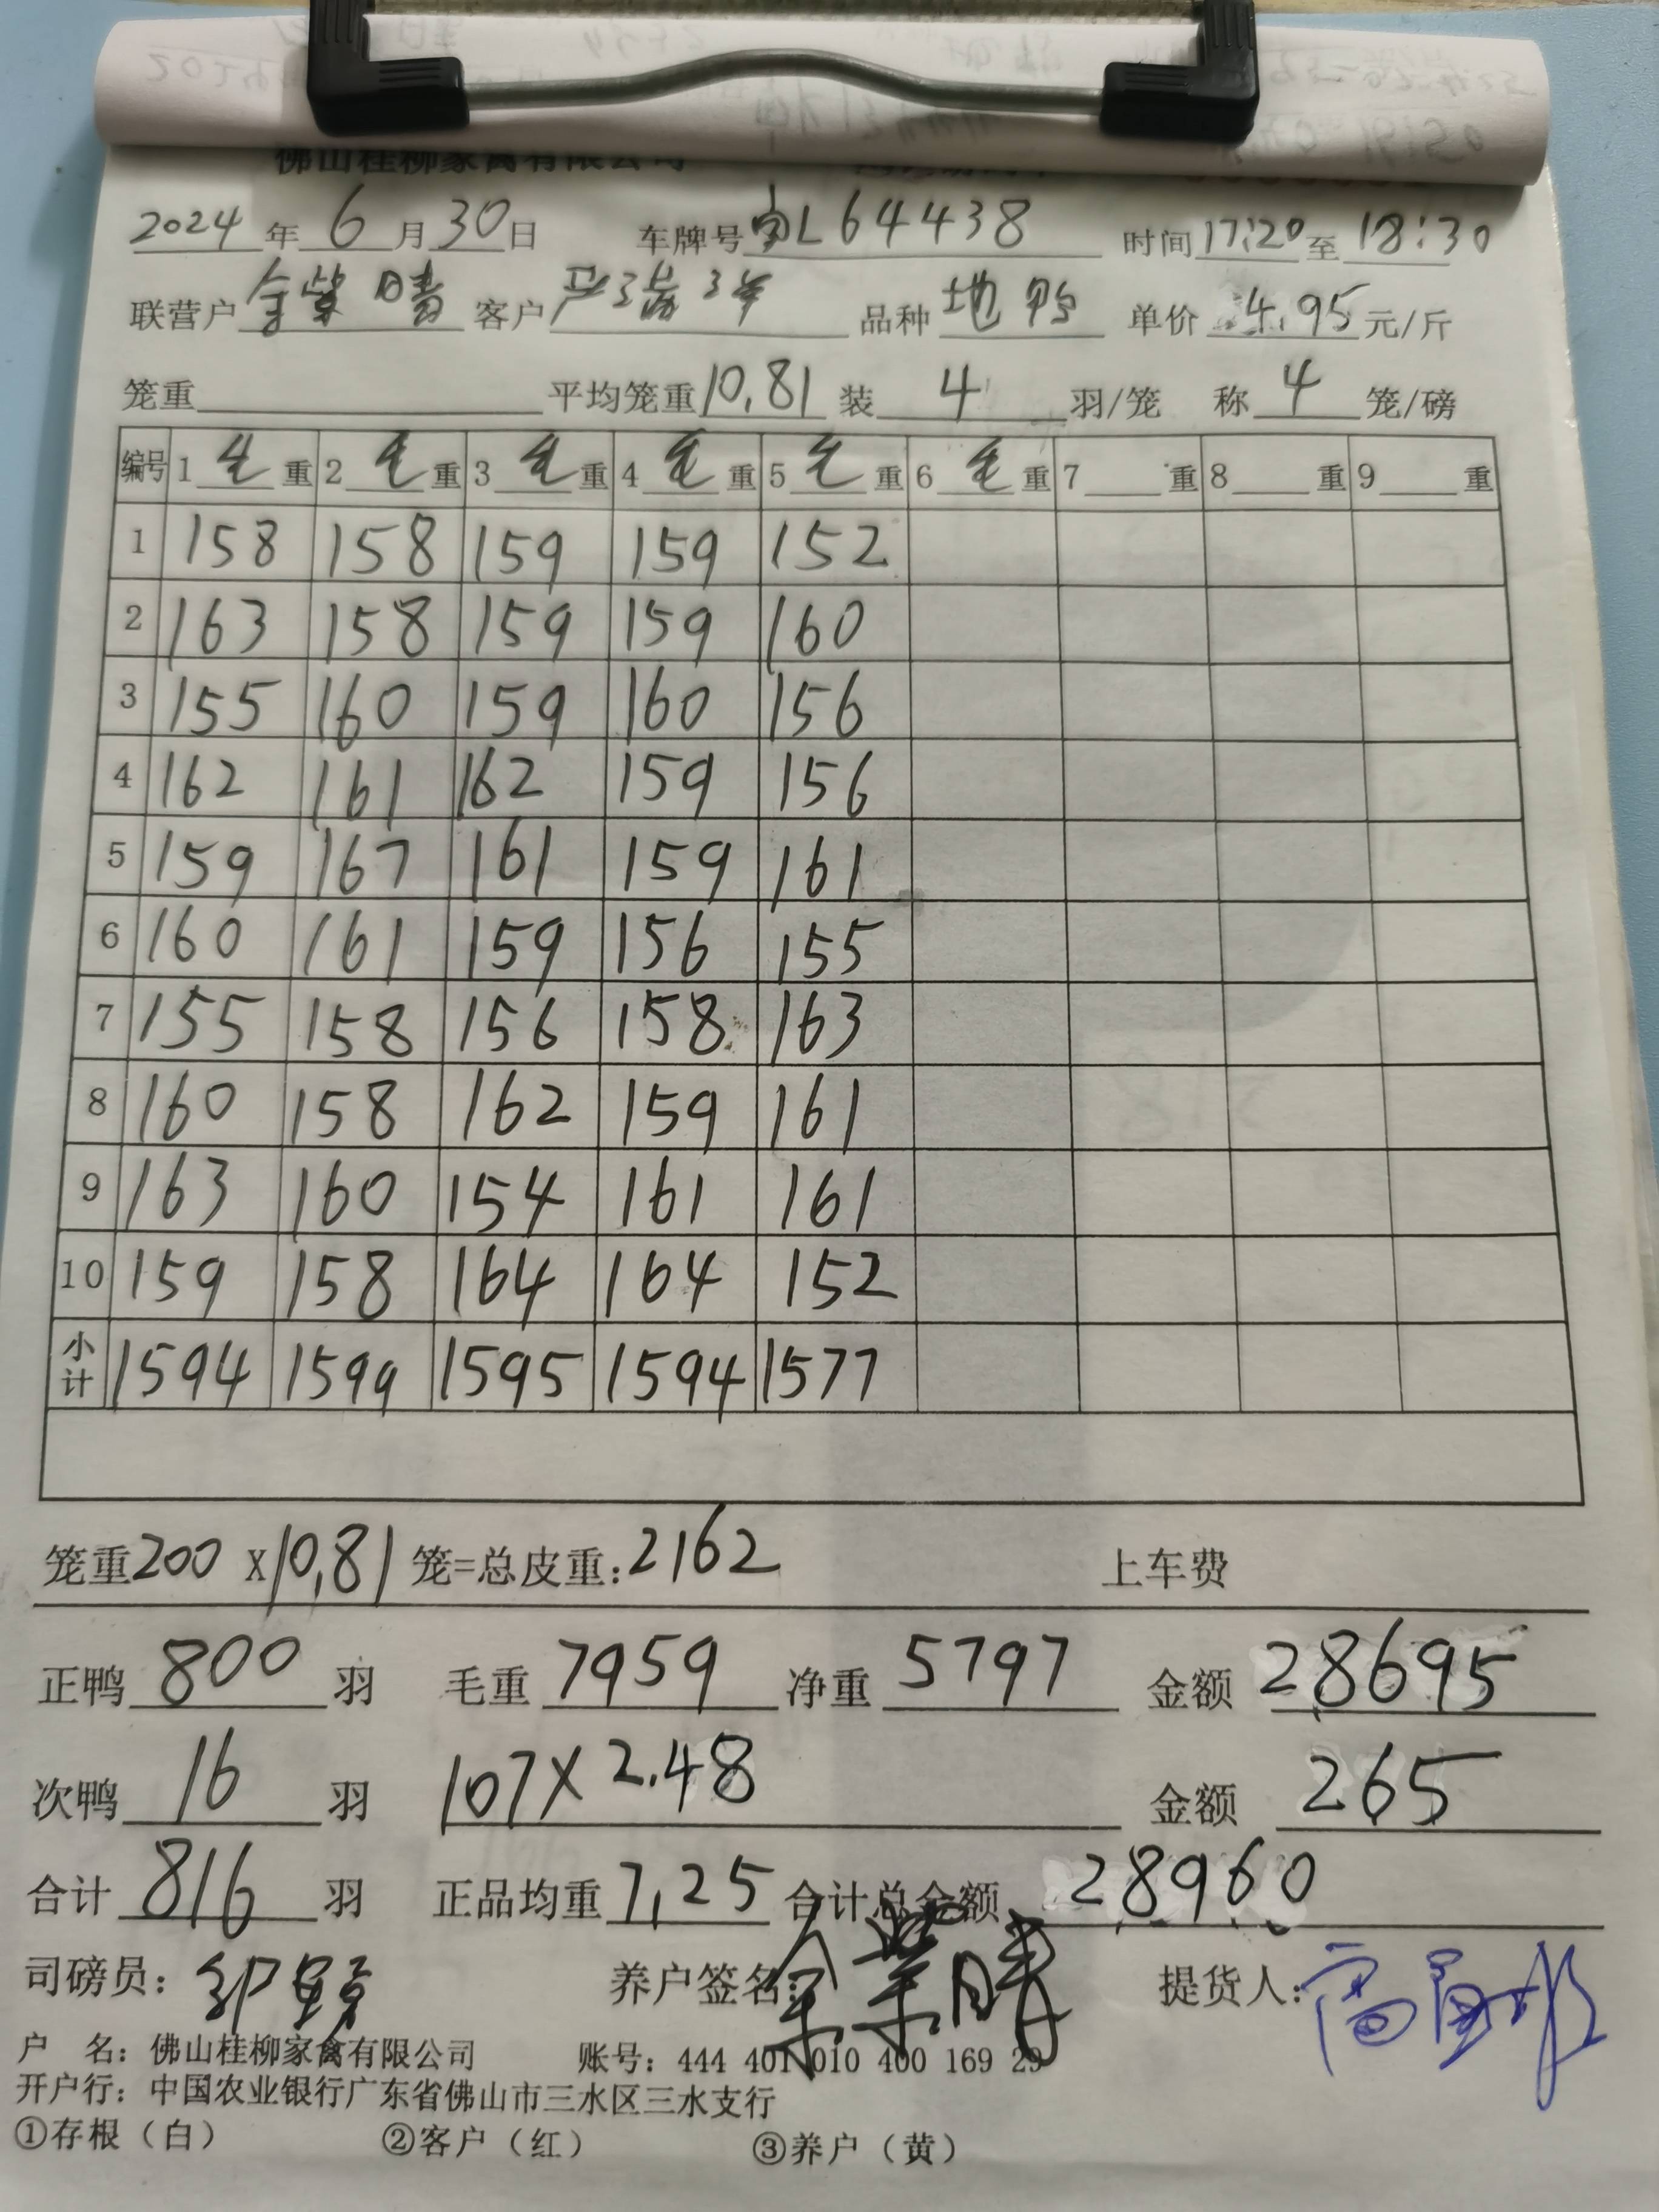 佛山桂柳家禽有限公司
2024年6月30日 车牌号 L64438 时间17:20至18:30
联营户 晴 客户 品种 地鸭 单价4.95元/斤
笼重 平均笼重10.81 装4羽/笼 称4笼/磅
编号 1毛重 2毛重 3毛重 4毛重 5毛重 6毛重 7重 8重 9重
1 158 158 159 159 152
2 163 158 159 159 160
3 155 160 159 160 156
4 162 161 162 159 156
5 159 167 161 159 161
6 160 161 159 156 155
7 155 158 156 158 163
8 160 158 162 159 161
9 163 160 154 161 161
10 159 158 164 164 152
小计 1594 1599 1595 1594 1577
笼重200X10.81笼=总皮重:2162 上车费
正鸭800羽 毛重7959 净重5797 金额28695
次鸭16羽 107X2.48 金额265
合计816羽 正品均重7.25 合计总金额28960
司磅员: 养户签名: 提货人:
户 名: 佛山桂柳家禽有限公司 账号: 444 401 010 400 169 29
开户行: 中国农业银行广东省佛山市三水区三水支行
①存根（白） ②客户（红） ③养户（黄）